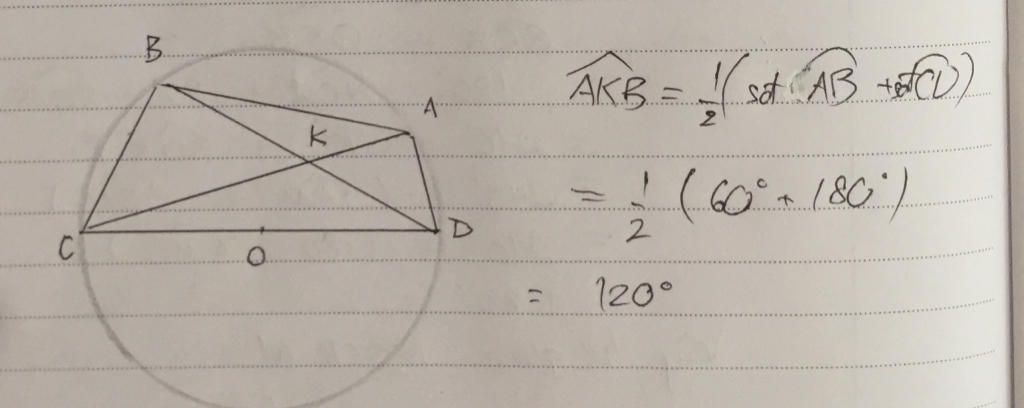 B
A
K
C
O
D
AKB = 1/2 (sđ AB + sđ CD)
= 1/2 (60° + 180°)
= 120°